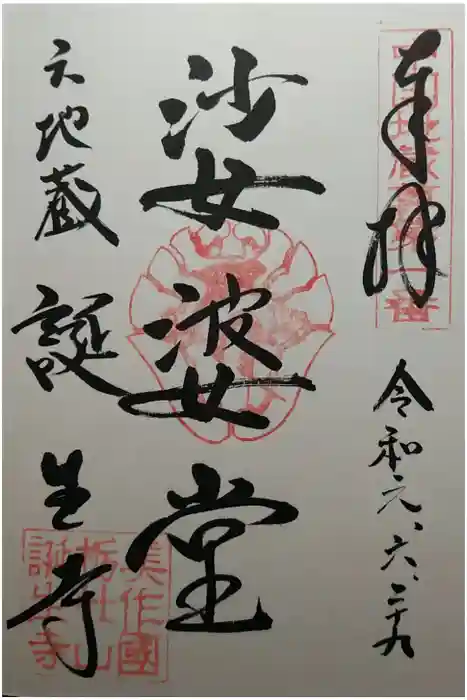 奉拝
令和元、六、二十九
娑婆堂
六地蔵
誕生寺
美作國
栃社山
誕生寺